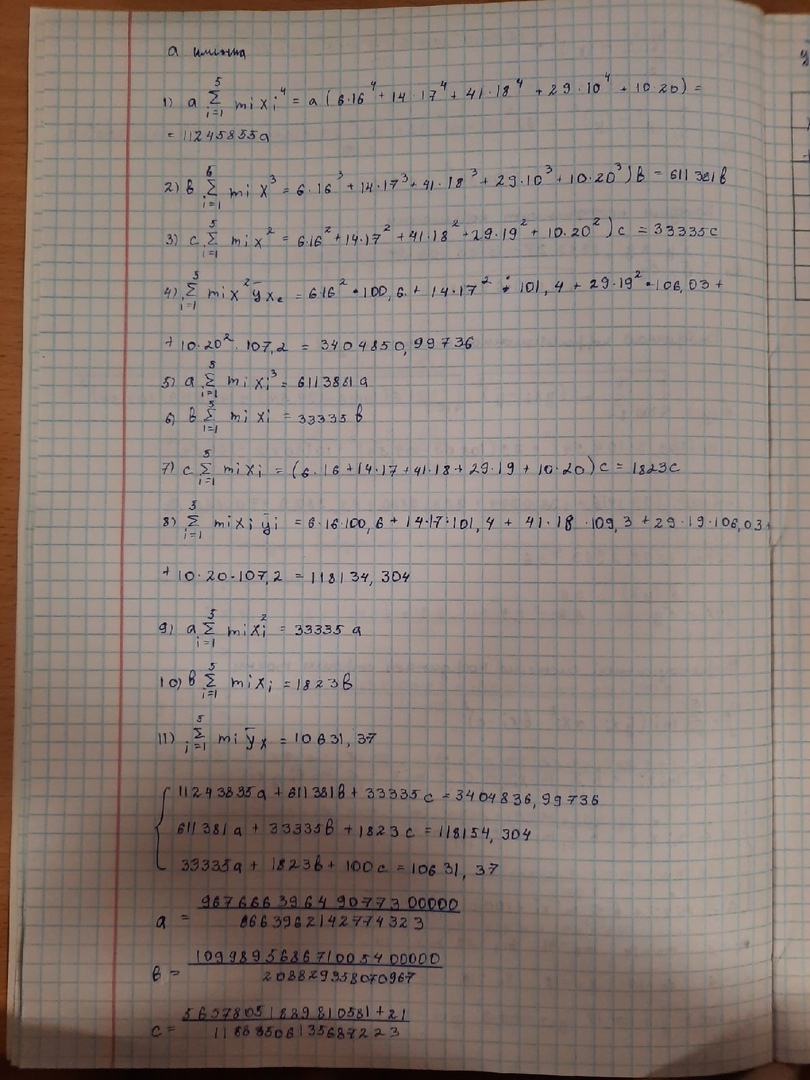 а именно
1) a ∑_{i=1}^{5} mi xi^4 = a (6·16^4 + 14·17^4 + 41·18^4 + 29·10^4 + 10·20) =
= 11245855a
2) в ∑_{i=1}^{6} mi x^3 = 6·16^3 + 14·17^3 + 41·18^3 + 29·10^3 + 10·20^3) в = 611381в
3) c ∑_{i=1}^{5} mi x^2 = 6·16^2 + 14·17^2 + 41·18^2 + 29·19^2 + 10·20^2) c = 33335c
4) ∑_{i=1}^{5} mi x^2 ȳx_e = 6·16^2 · 100,6 + 14·17^2 · 101,4 + 29·19^2 · 106,03 +
+ 10·20^2 · 107,2 = 3404850,99736
5) a ∑_{i=1}^{5} mi xi^3 = 6113861a
6) в ∑_{i=1}^{5} mi xi = 33335в
7) c ∑_{i=1}^{5} mi xi = (6·16 + 14·17 + 41·18 + 29·19 + 10·20) c = 1823c
8) ∑_{i=1}^{5} mi xi ȳi = 6·16·100,6 + 14·17·101,4 + 41·18·109,3 + 29·19·106,03 +
+ 10·20·107,2 = 118134,304
9) a ∑_{i=1}^{5} mi xi^2 = 33335a
10) в ∑_{i=1}^{5} mi xi = 1823в
11) ∑_{i=1}^{5} mi ȳx = 10631,37
11243835a + 611381в + 33335c = 3404836,99736
611381a + 33335в + 1823c = 118154,304
33335a + 1823в + 100c = 10631,37
a = 967666396490773 00000 / 8663962142774323
в = 1099895686710054 00000 / 208829358070967
c =